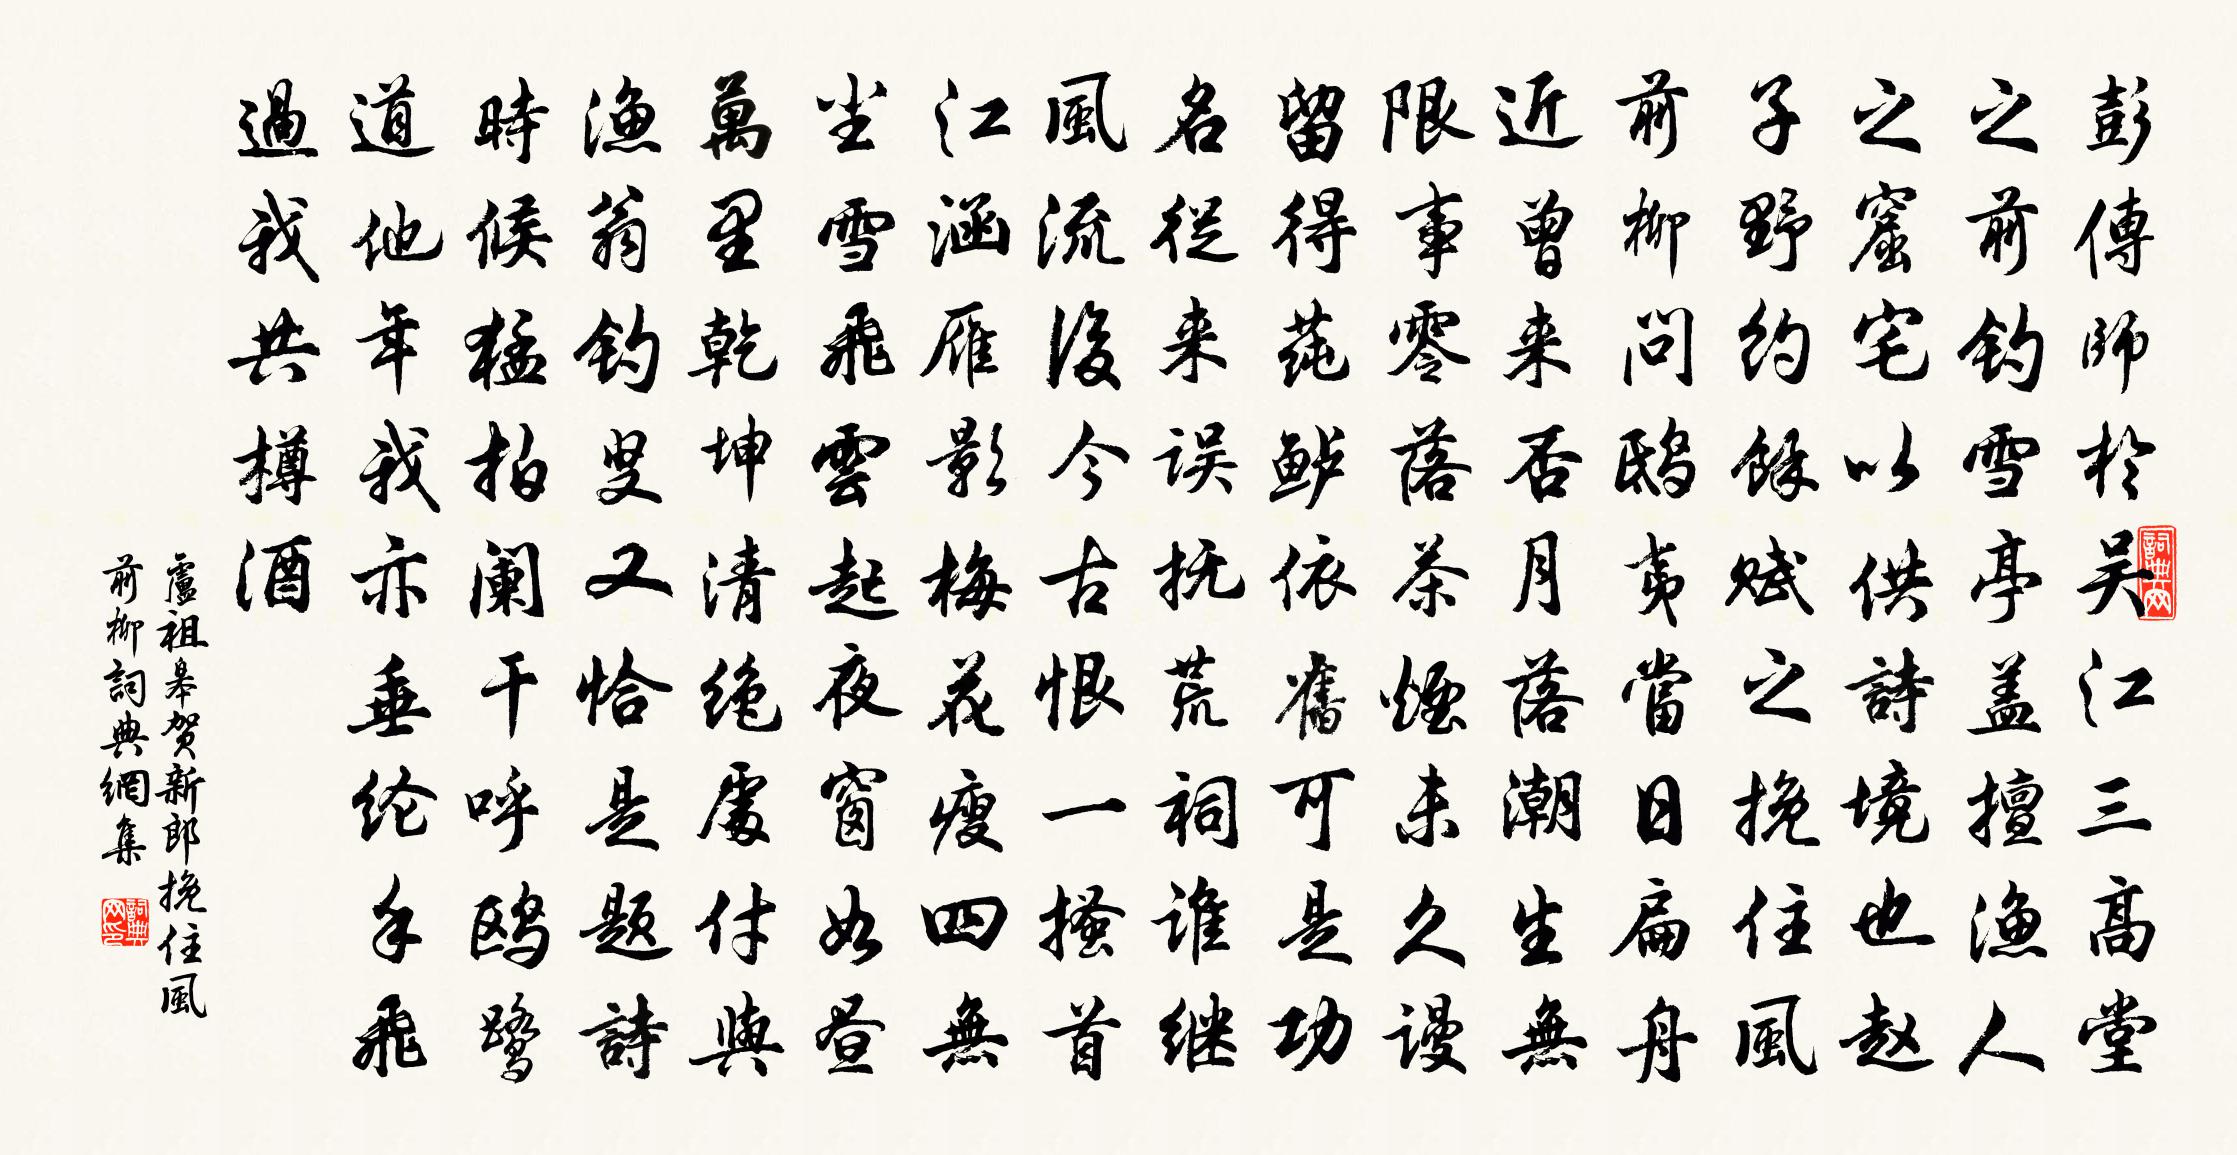 彭傳師於吴江三高堂
之前钓雪亭盖擅漁人
之窟宅以供詩境也赵
子野约餘赋之挽住風
前柳问鸱夷當日扁舟
近曾来否月落潮生無
限事零落茶煙未久谩
留得莼鲈依舊可是功
名從来误抚荒祠谁继
風流後今古恨一搔首
江涵雁影梅花瘦四無
尘雪飛雲起夜窗如昼
萬里乾坤清绝處付與
漁翁钓叟又恰是题詩
時候猛拍阑干呼鸥鹭
道他年我亦垂纶手飛
過我共樽酒
盧祖皋贺新郎挽住風
前柳詞典網集
詞典网
詞典网印